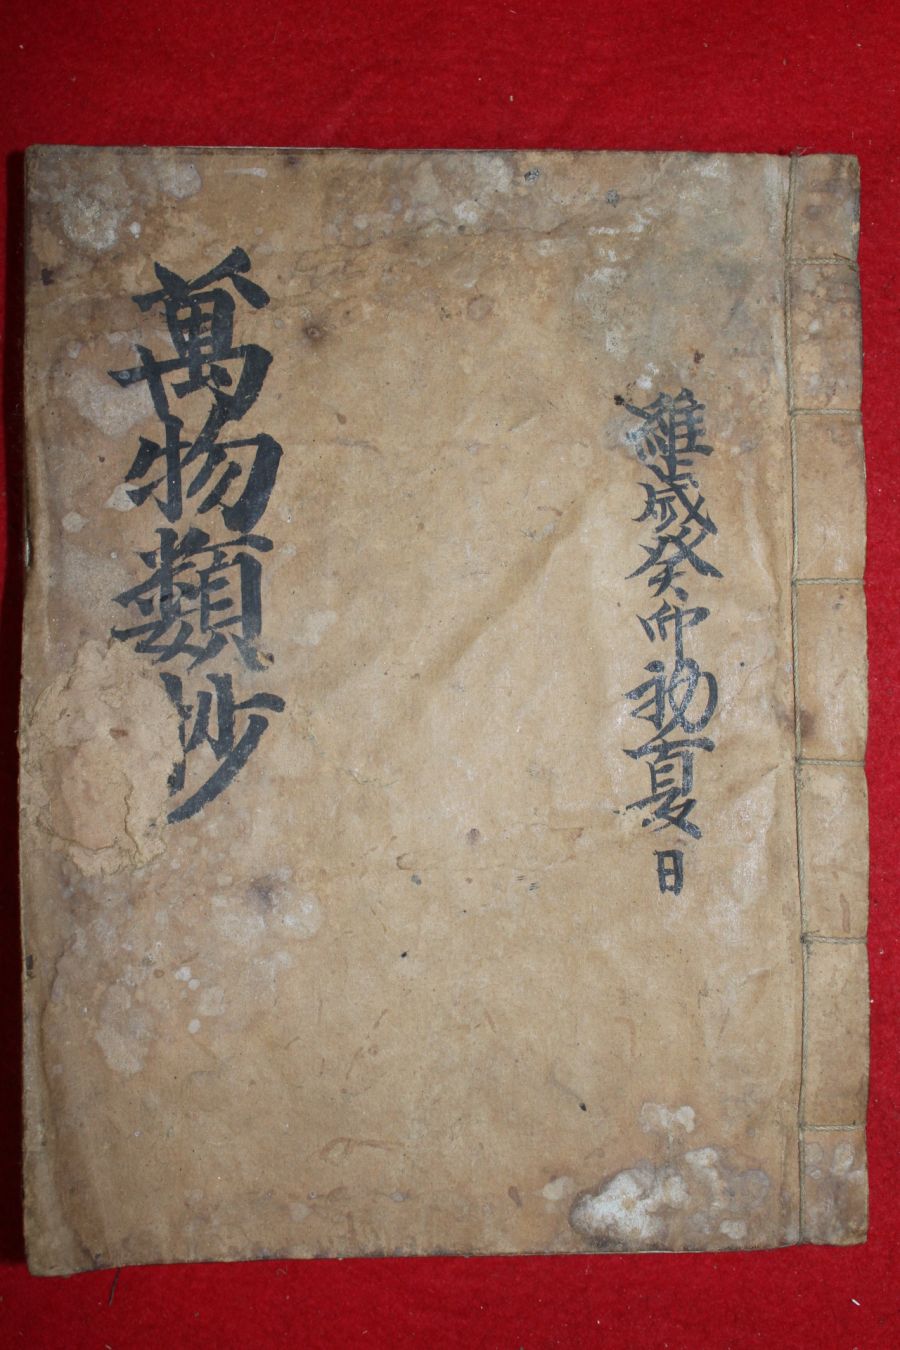 維歲癸卯初夏日
萬物類抄